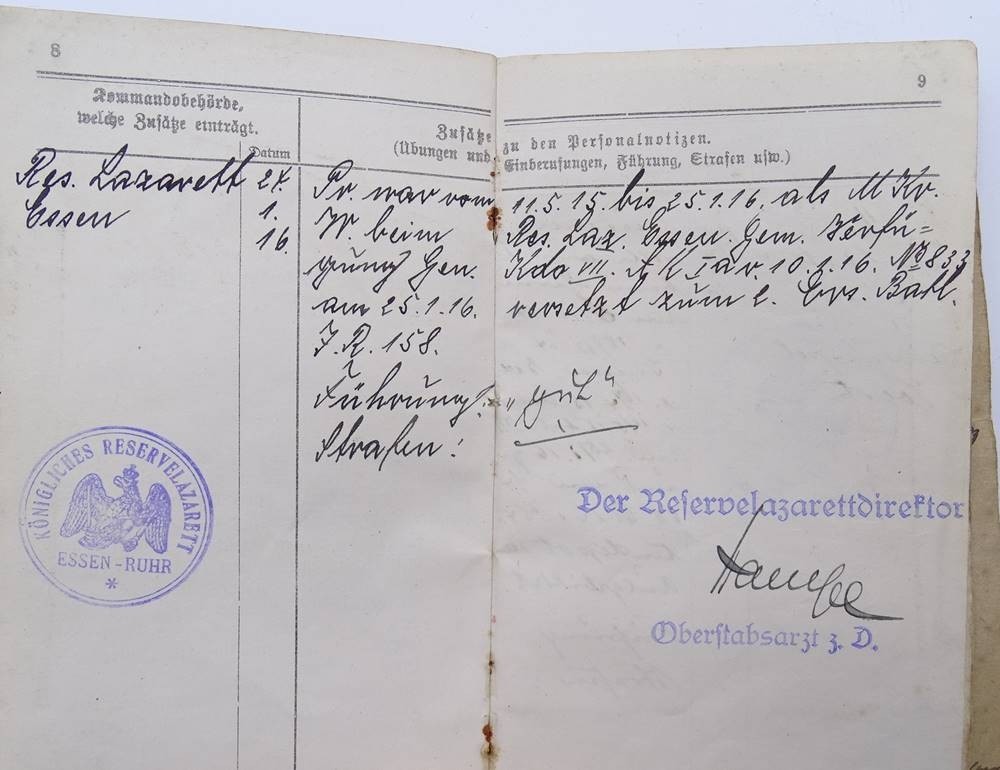 8
9
Kommandobehörde,
welche Zusätze einträgt.
Datum
Zusätze zu den Personalnotizen.
(Übungen und Einberufungen, Führung, Strafen usw.)
Res. Lazarett 24. Pr. war vom 11.5.15. bis 25.1.16. als M Kr.
Essen 1. W. beim Res. Laz. Essen. Gem. Verfü=
16. gung Gen. Kdo VII. A K. I a v. 10.1.16. No 833
am 25.1.16. versetzt zum 2. Ers. Batl.
J. R. 158.
Führung: „gut“
Strafen: —
KÖNIGLICHES RESERVELAZARETT
ESSEN-RUHR
*
Der Reservelazarettdirektor
Oberstabsarzt z. D.